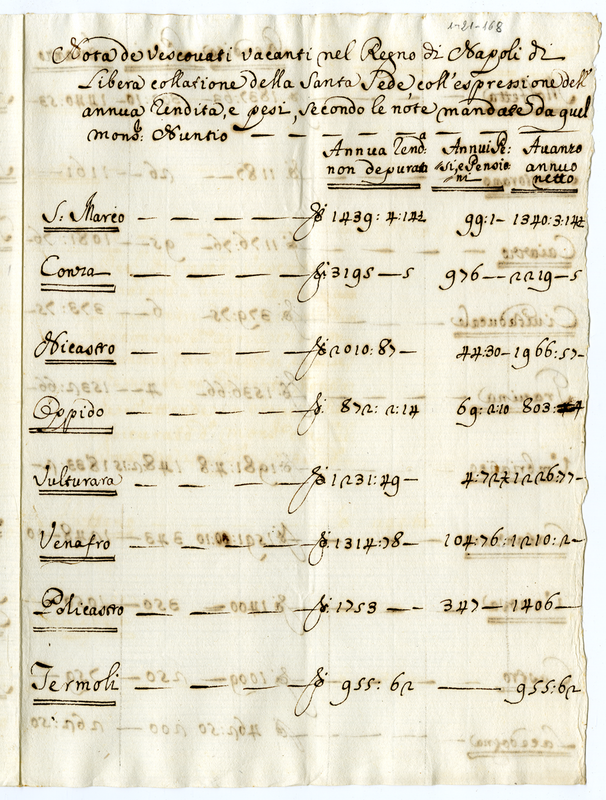 1-21-168
Nota de Vescovati vacanti nel Regno di Napoli di
Libera collatione della Santa Sede coll'espressione dell'
annua Rendita, e pesi, secondo le note mandate da quel
mons.r Nuntio
Annua Rend.a Annui Pe: Avanzo
non depurata si, e Pensio annuo
ni netto
S: Marco 1439:4:14½ 99:1 1340:3:14½
Conza 3195—5 976—2219—5
Nicastro 2010:87 44:30—1966:57
Oppido 872:2:14 69:2:10 803:4
Vulturara 1231:49 4:72 1226:77
Venafro 1314:78 104:76:1210:2
Policastro 1753 347—1406
Termoli 955:62 955:62